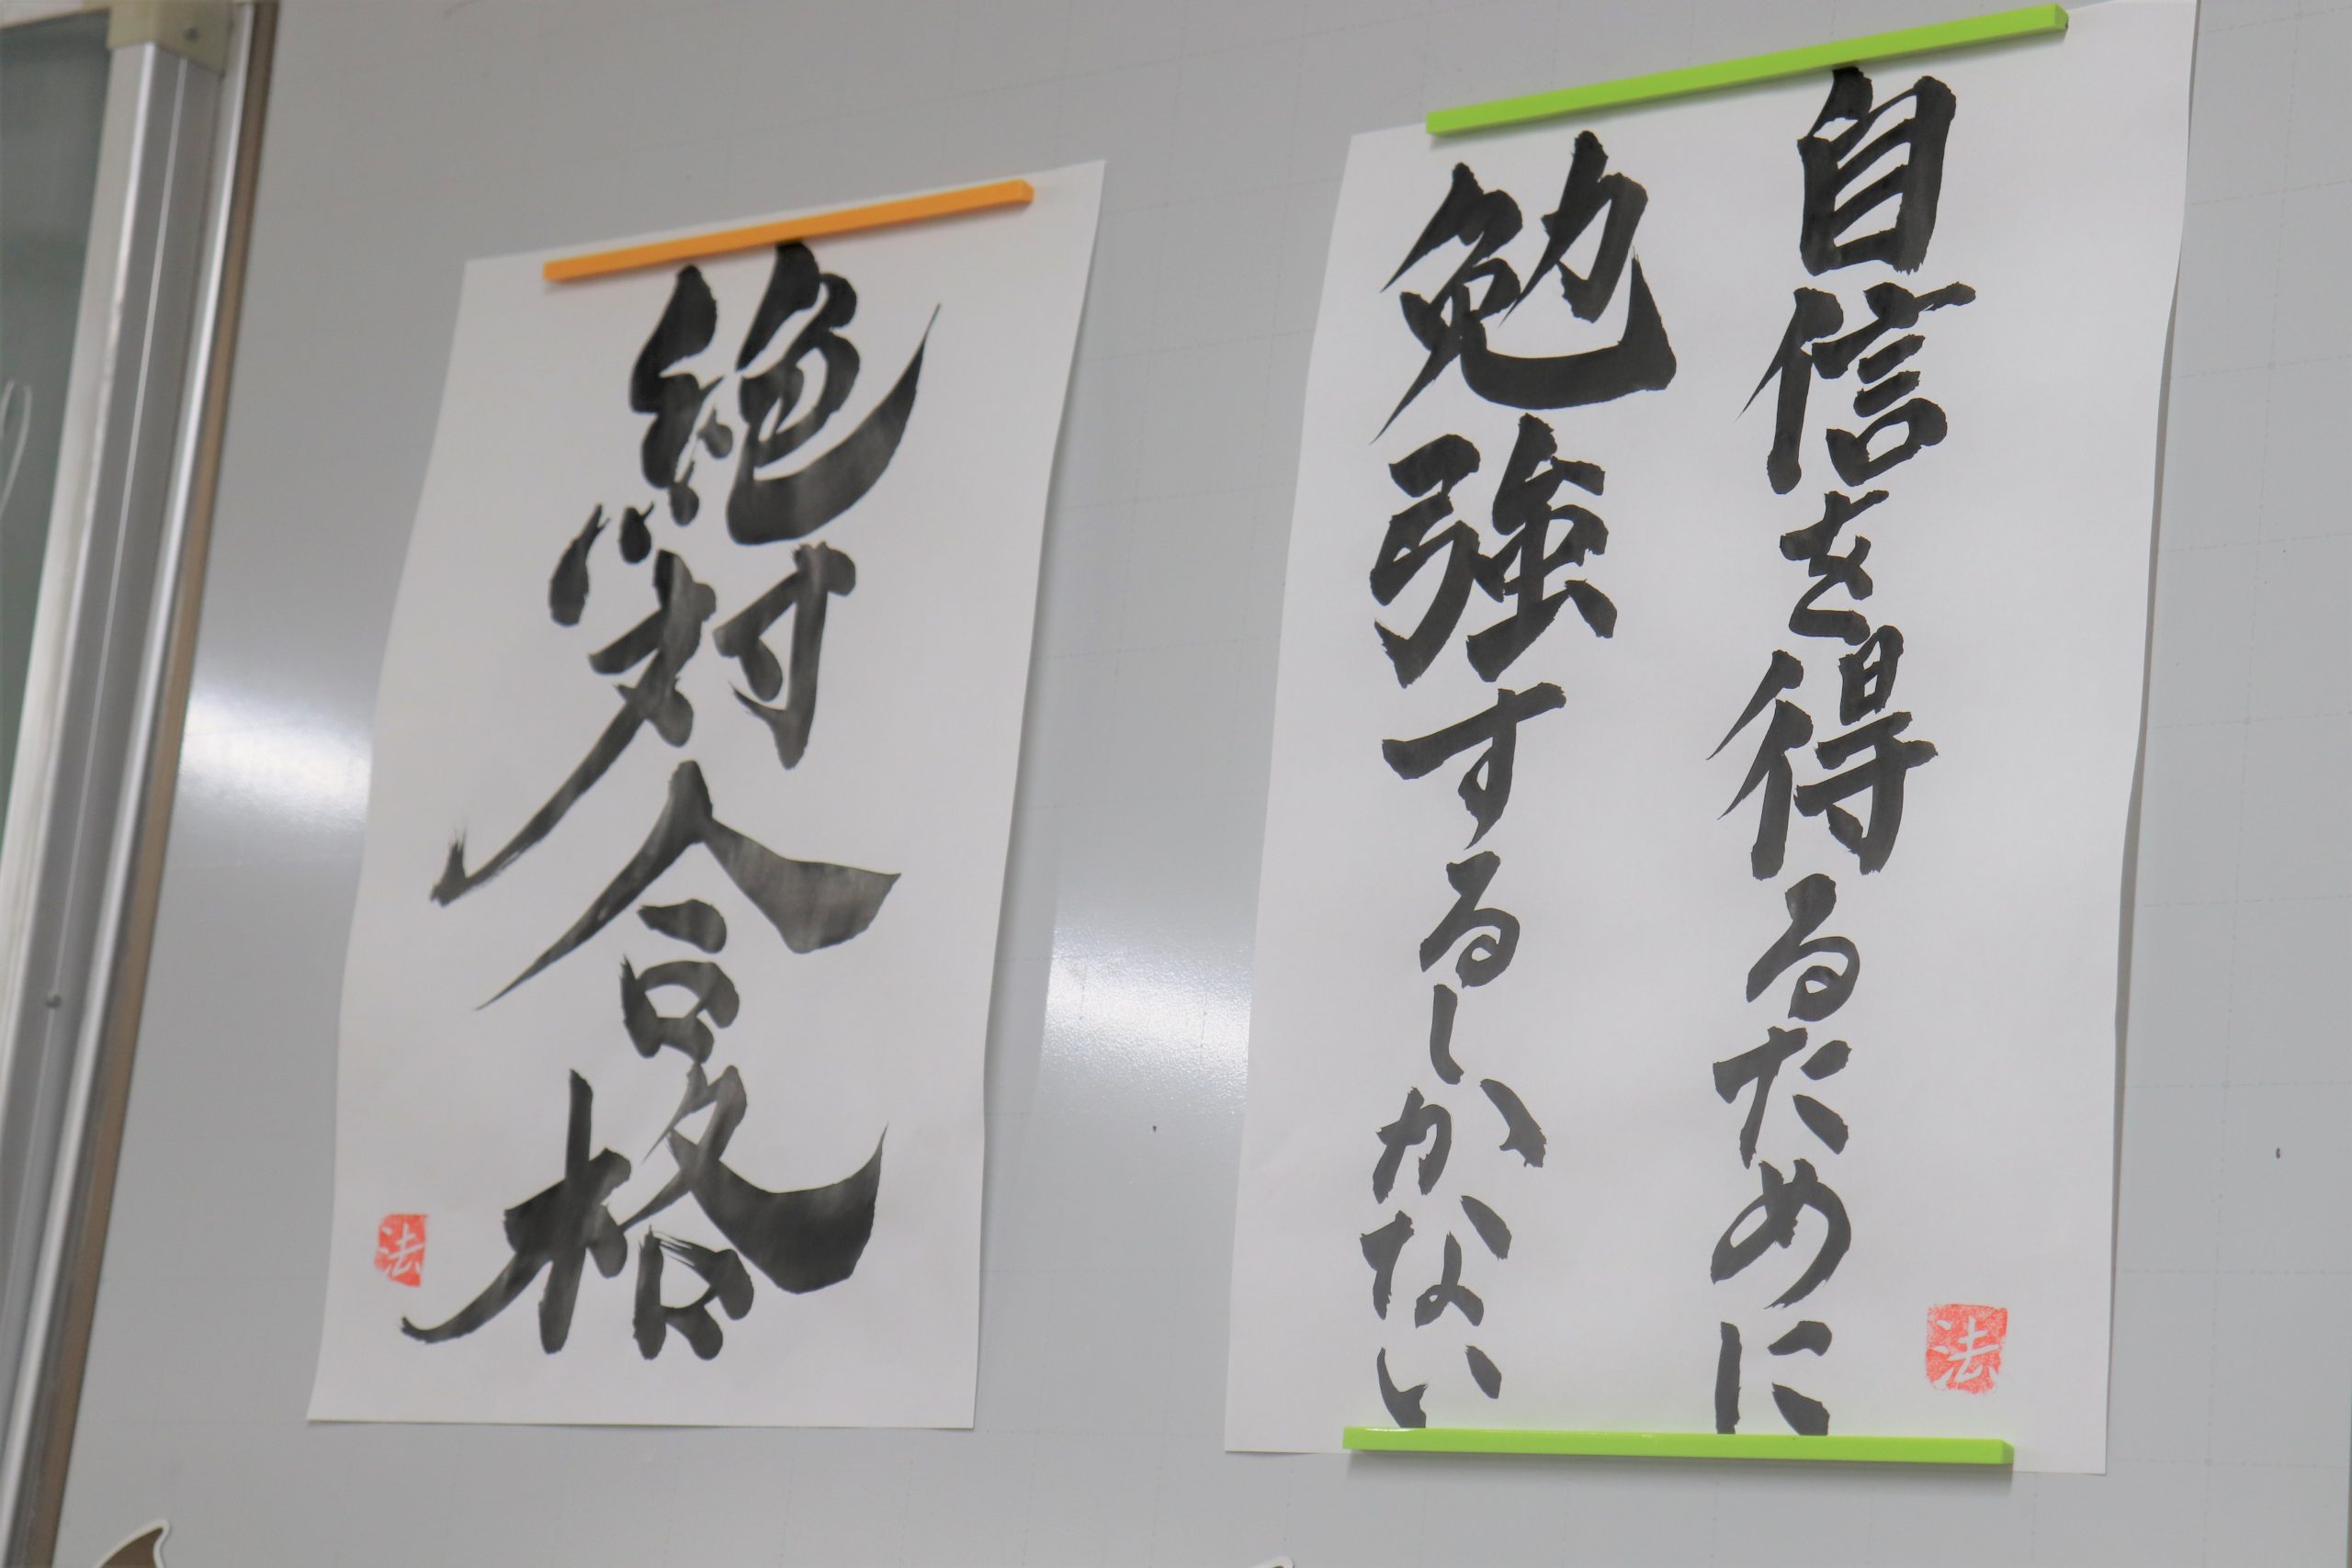 自信を得るために
勉強するしかない
法
絶対合格
法